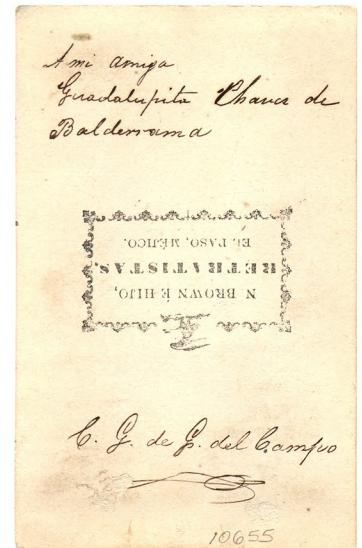 A mi amiga
Guadalupita Chavez de
Balderrama
N BROWN E HIJO,
RETRATISTAS.
EL PASO, MÉJICO.
C. G. de G. del Campo
10655